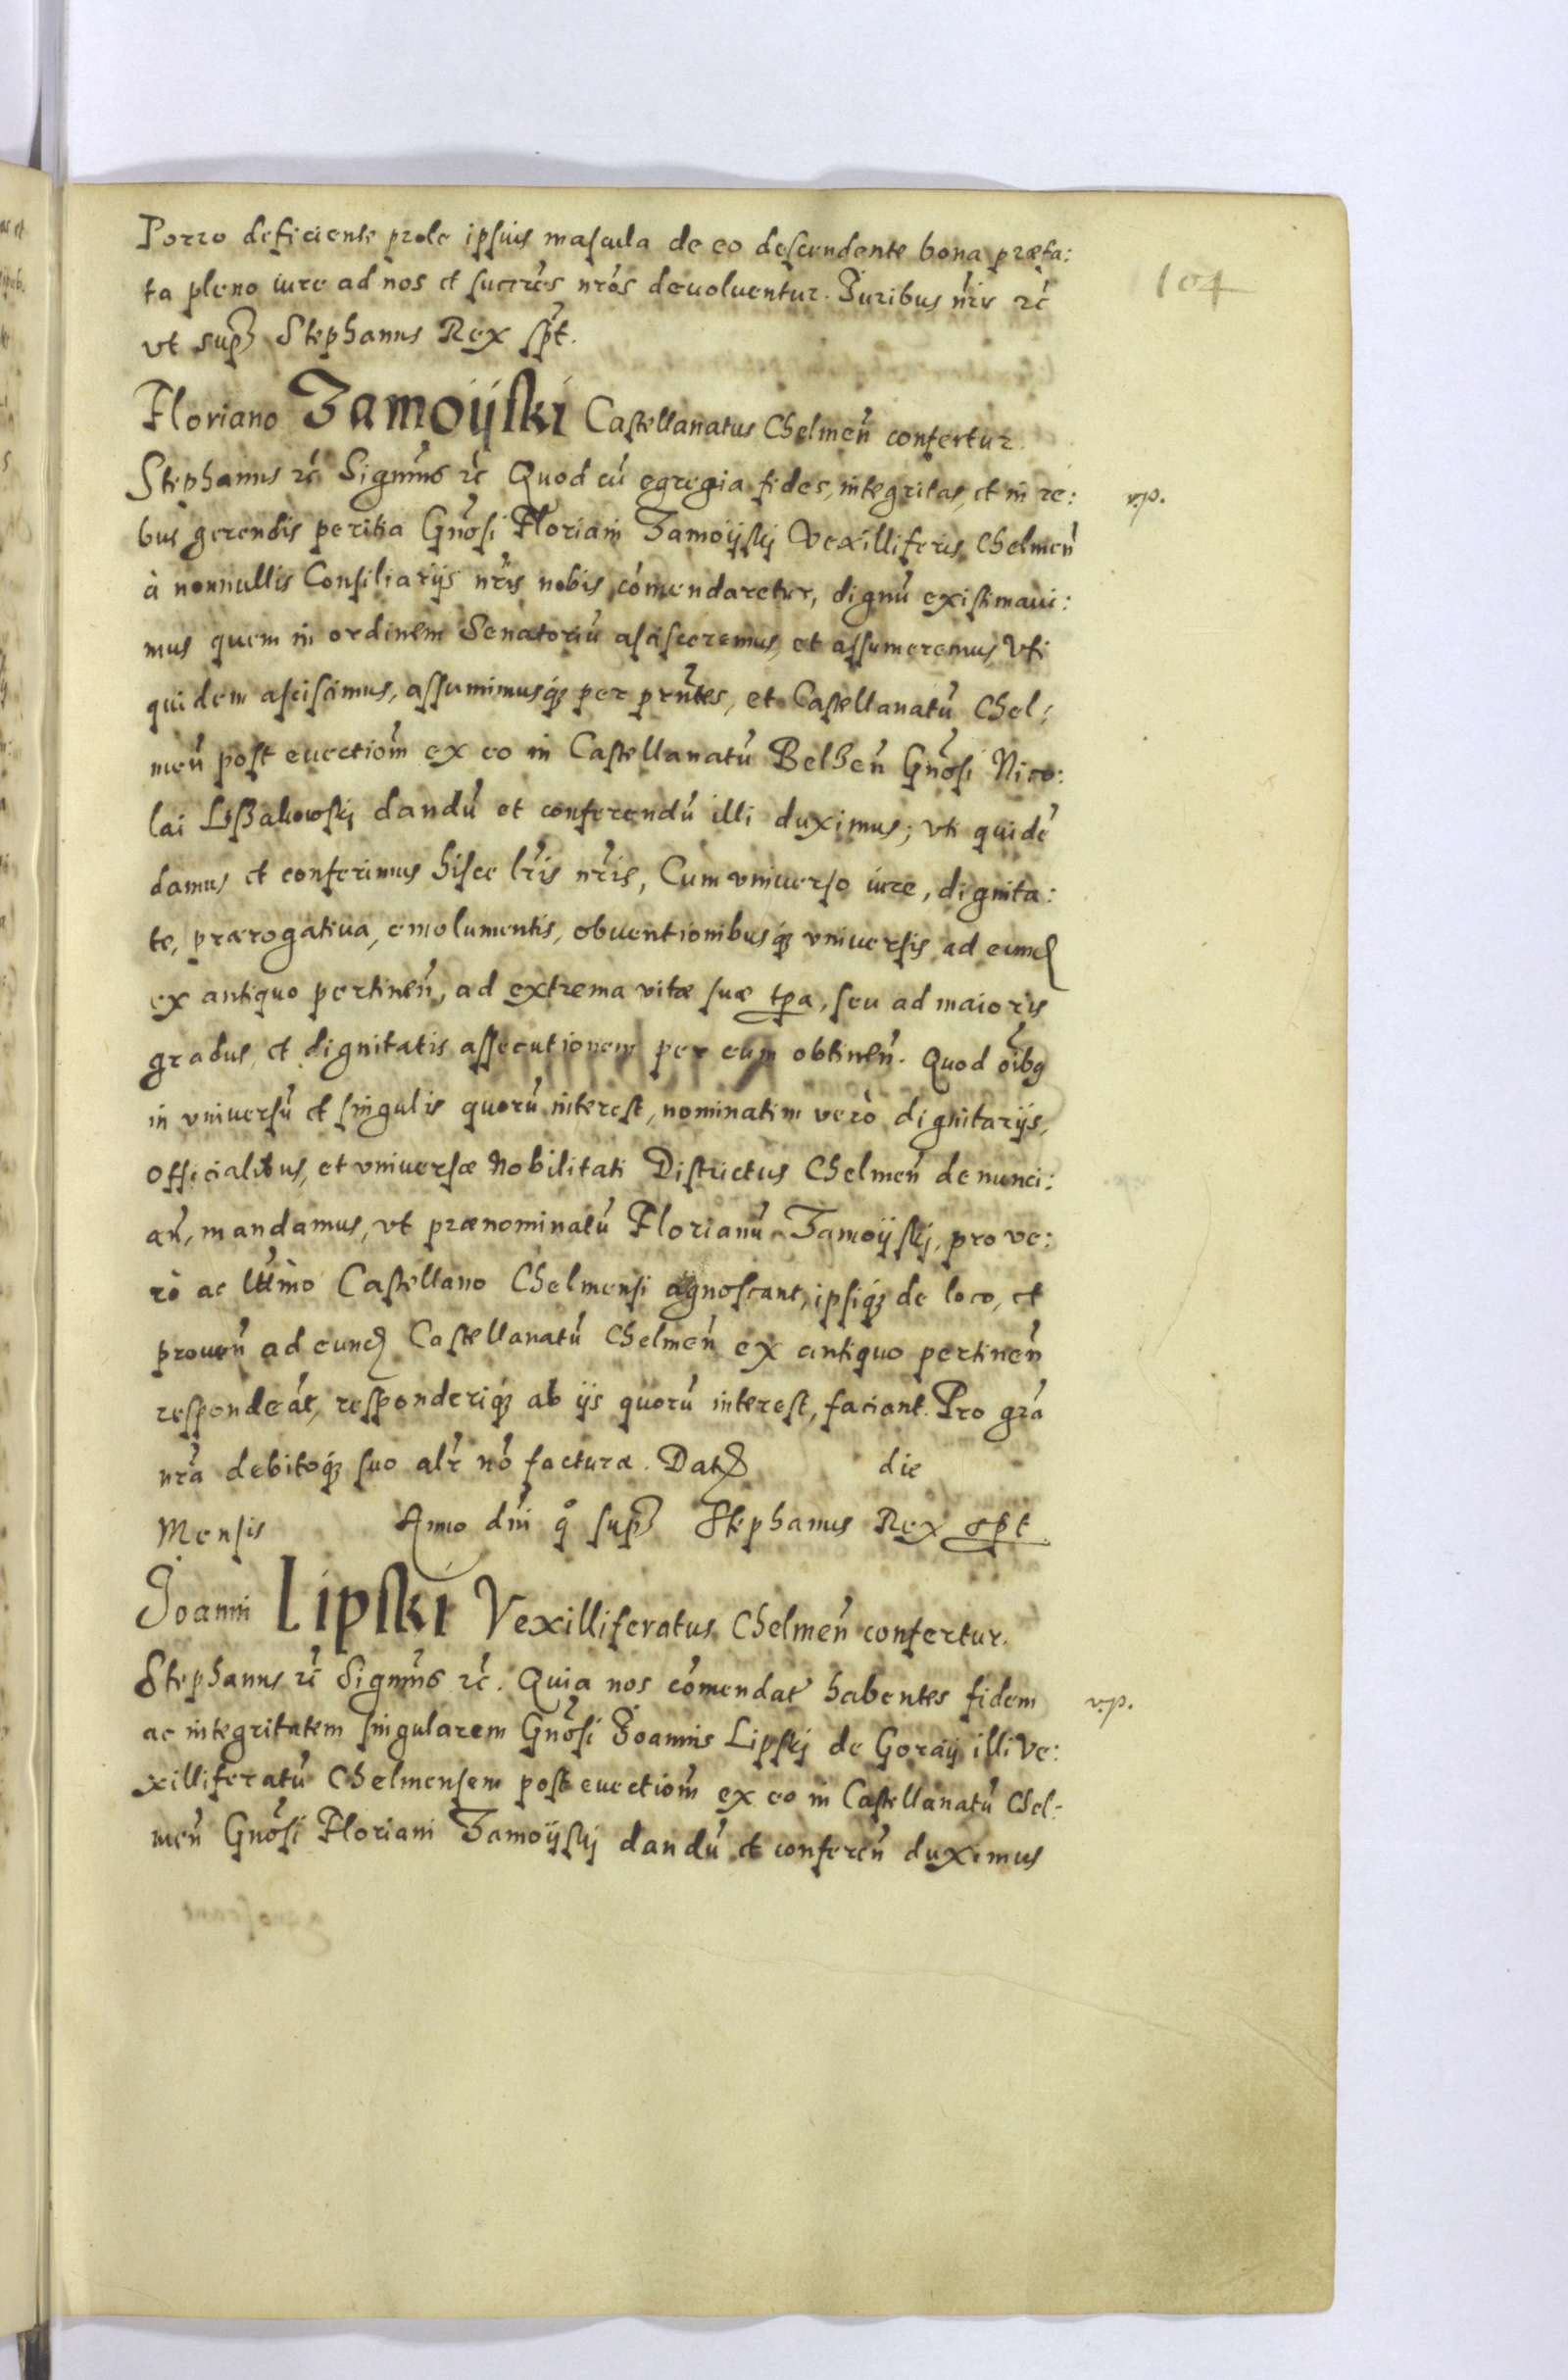 104
Porro deficiente prole ipsius mascula de eo descendente bona præfa:
ta pleno iure ad nos et succrẽs nrõs devoluentur. Juribus nr̃is rc̃
vt sup Stephanus Rex spt.
Floriano Zamoÿski Castellanatus Chelmen̄ confertur.
Stephanus rc̃ Significamus rc̃ Quod cũ egregia fides, integritas, et in re:
v.p.
bus gerendis peritia Gnõsi Floriani Zamoÿskj Vexilliferis Chelmen̄
à nonnullis Consiliarijs nr̃is nobis com̃endaretur, dignũ existimaui:
mus quem in ordinem Senatoriũ ascisceremus, et assumeremus, Vti
quidem asciscimus, assumimusq; per prñtes, et Castellanatũ Chel:
men̄ post euectiom̃ ex eo in Castellanatũ Belzen̄ Gnõsi Nico:
lai Lyßakowskj dandũ et conferendũ illi duximus; vti quidẽ
damus et conferimus hisce lr̃is nr̃is, Cum vniuerso iure, dignita:
te, prærogatiua, emolumentis, obuentionibusq; vniuersis ad eund
ex antiquo pertinen̄, ad extrema vitæ suæ tpa, seu ad maioris
gradus, et dignitatis assecutionem per eum obtinen̄. Quod oĩbg
in vniuersũ et singulis quorũ interest, nominatim verò dignitarijs,
Officialibus, et vniuersæ Nobilitati Districtus Chelmen̄ denunci:
an̄, mandamus, vt prænominatũ Florianũ Zamoÿskj, pro ve:
rò ac lltimo Castellano Chelmensi agnoscant, ipsiq; de loco, et
prouen̄ ad eund Castellanatũ Chelmen̄ ex antiquo pertinen̄
respondeãt, responderiq; ab ijs quorũ interest, faciant. Pro gr̃a
nr̃a debitoq; suo alr̃ nõ facturæ. Dat die
Mensis Anno dni q̊ sup Stephanus Rex spt
Joanni Lipski Vexilliferatus Chelmen̄ confertur.
Stephanus rc̃ Significamus rc̃. Quia nos com̃endat̃ habentes fidem
v.p.
ac integritatem singularem Gnõsi Joannis Lipskj de Goraÿ illi Ve:
xilliferatũ Chelmensem post euectiom̃ ex eo in Castellanatũ Chel:
men̄ Gnõsi Floriani Zamoÿskj dandũ et conferen̄ duximus